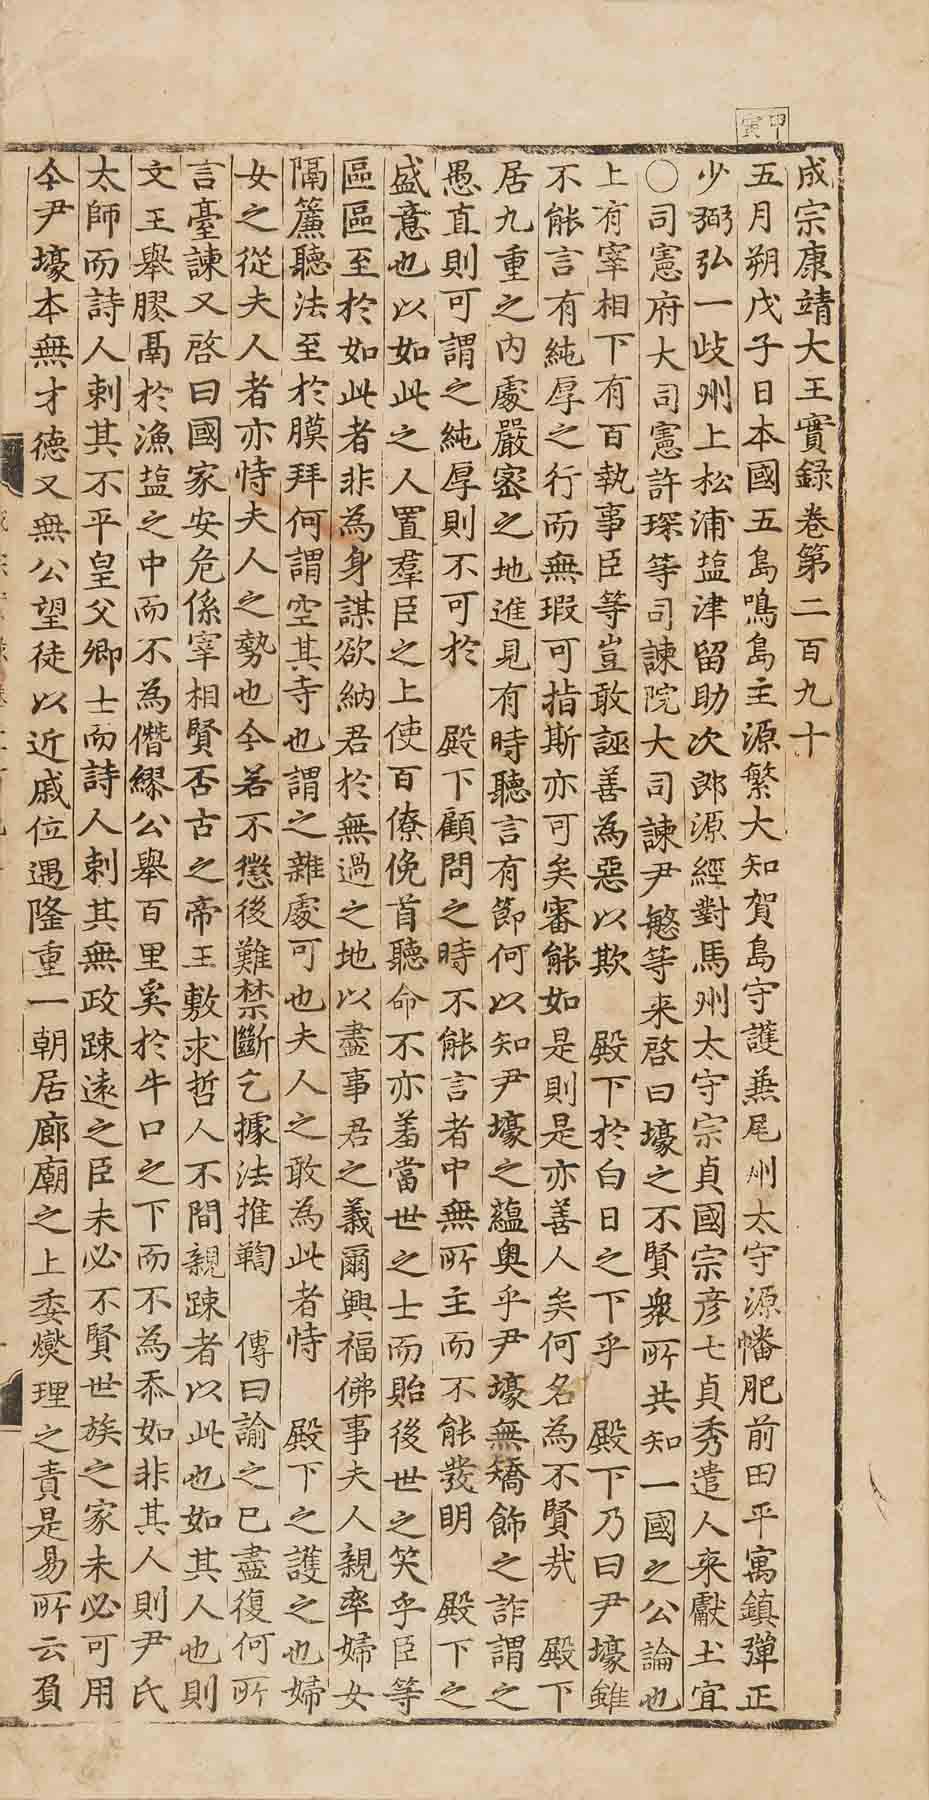 甲寅
成宗康靖大王實錄卷第二百九十
五月朔戊子日本國五島鳴島主源繁大知賀島守護燕尾州太守源幡肥前田平寓鎮彈正
少弼弘一岐州上松浦塩津留助次郎源經對馬州太守宗貞國宗彦七貞秀遣人來獻土宜
○司憲府大司憲許琛等司諫院大司諫尹愍等来啓曰壕之不賢衆所共知一國之公論也
上有宰相下有百執事臣等豈敢誣善為惡以欺　殿下於白日之下乎　殿下乃曰尹壕雖
不能言有純厚之行而無瑕可指斯亦可矣審能如是則是亦善人矣何名為不賢㢤　殿下
居九重之内處嚴密之地進見有時聽言有節何以知尹壕之蘊奥乎尹壕無矯飾之詐謂之
愚直則可謂之純厚則不可於　殿下顧問之時不能言者中無所主而不能發明　殿下之
盛意也以如此之人置羣臣之上使百僚俛首聽命不亦羞當世之士而貽後世之笑乎臣等
區區至於如此者非為身謀欲納君於無過之地以盡事君之義爾興福佛事夫人親率婦女
隔簾聽法至於膜拜何謂空其寺也謂之雜處可也夫人之敢為此者恃　殿下之護之也婦
女之從夫人者亦恃夫人之勢也今若不懲後難禁斷乞據法推鞫　傳曰諭之已盡復何所
言臺諫又啓曰國家安危係宰相賢否古之帝王敷求哲人不間親踈者以此也如其人也則
文王舉膠鬲於漁塩之中而不為僭繆公舉百里奚於牛口之下而不為忝如非其人則尹氏
太師而詩人刺其不平皇父卿士而詩人刺其無政踈遠之臣未必不賢世族之家未必可用
今尹壕本無才德又無公望徒以近戚位遇隆重一朝居廊廟之上委燮理之責是易所云負